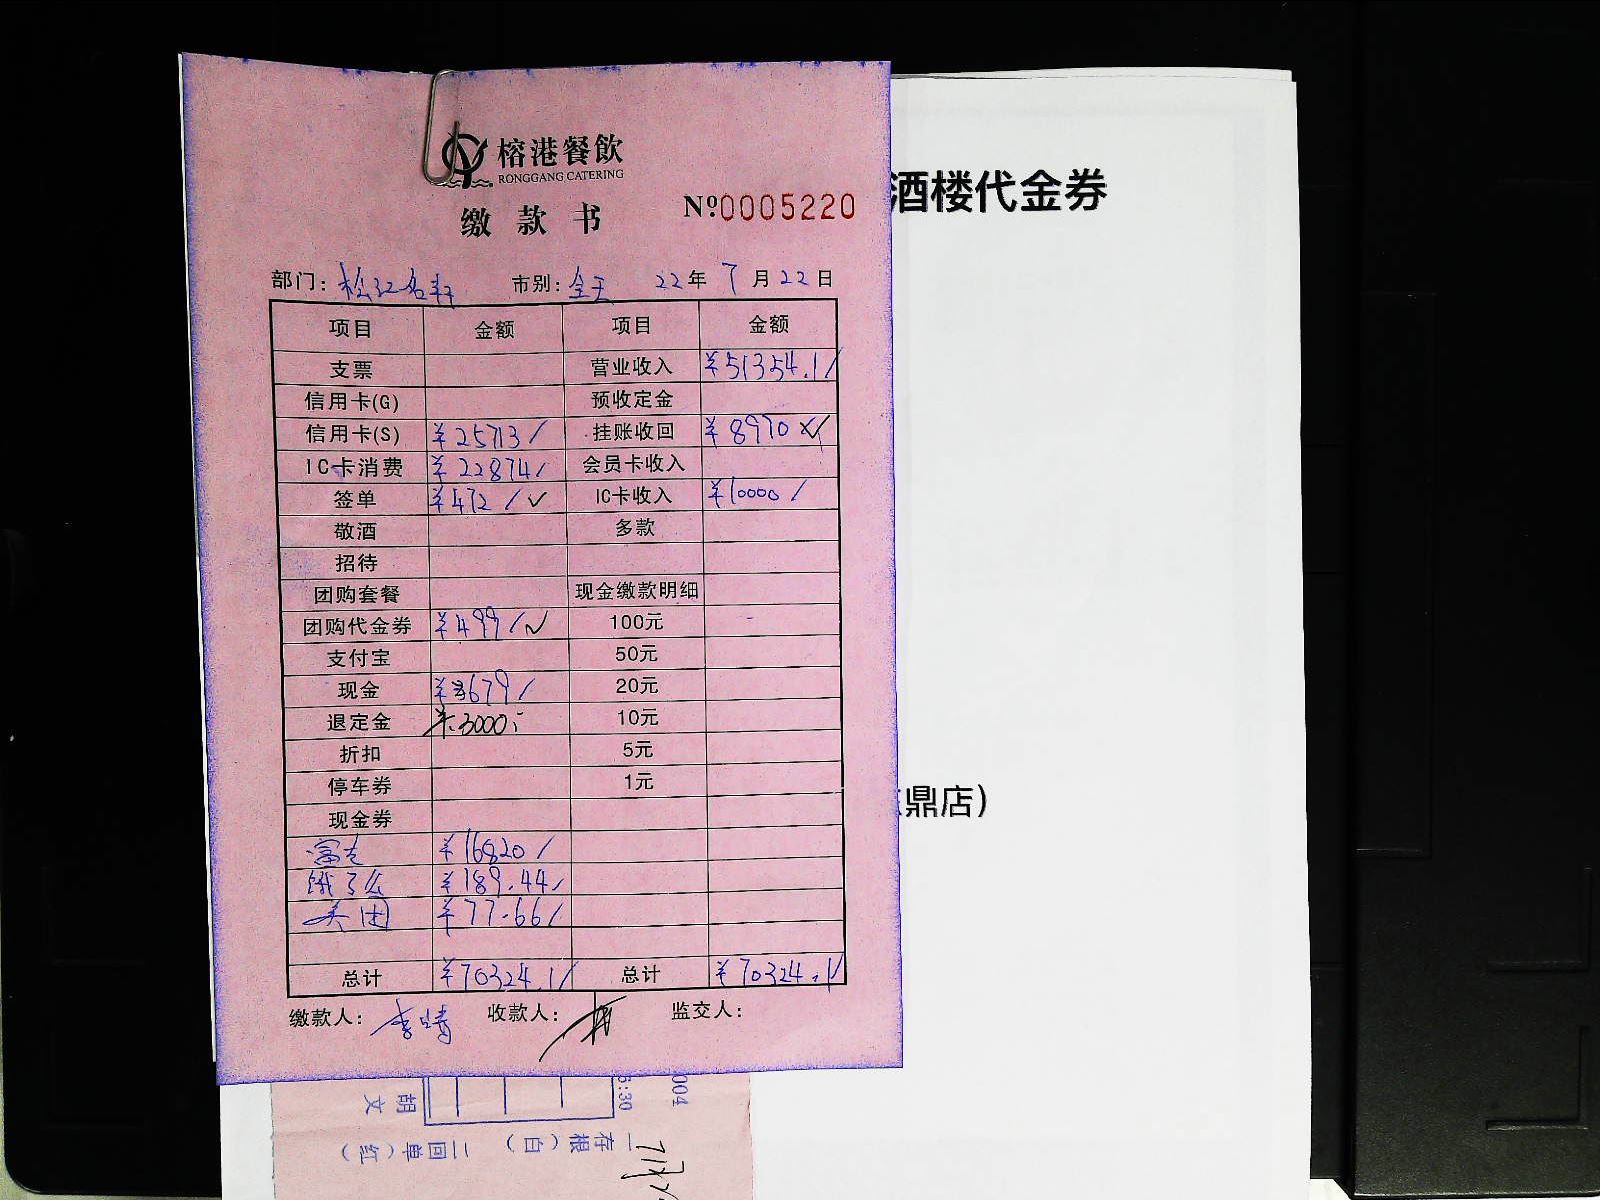 榕港餐飲
RONGGANG CATERING
缴款书 Nº0005220
酒楼代金券
部门：松江名轩 市别：全天 22年7月22日
项目 金额 项目 金额
支票 营业收入 ¥51354.1/
信用卡(G) 预收定金
信用卡(S) ¥25713/ 挂账收回 ¥8970
IC卡消费 ¥22874/ 会员卡收入
签单 ¥472/✓ IC卡收入 ¥10000/
敬酒 多款
招待
团购套餐 现金缴款明细
团购代金券 ¥499/✓ 100元
支付宝 50元
现金 ¥3679/ 20元
退定金 ¥3000 10元
折扣 5元
停车券 1元
现金券
鼎店）
富友 ¥16820/
饿了么 ¥189.44/
美团 ¥77.66/
总计 ¥70324.1/ 总计 ¥70324.1/
缴款人： 收款人： 监交人：
004
5:30
胡文
一存根（白） 二回单（红）